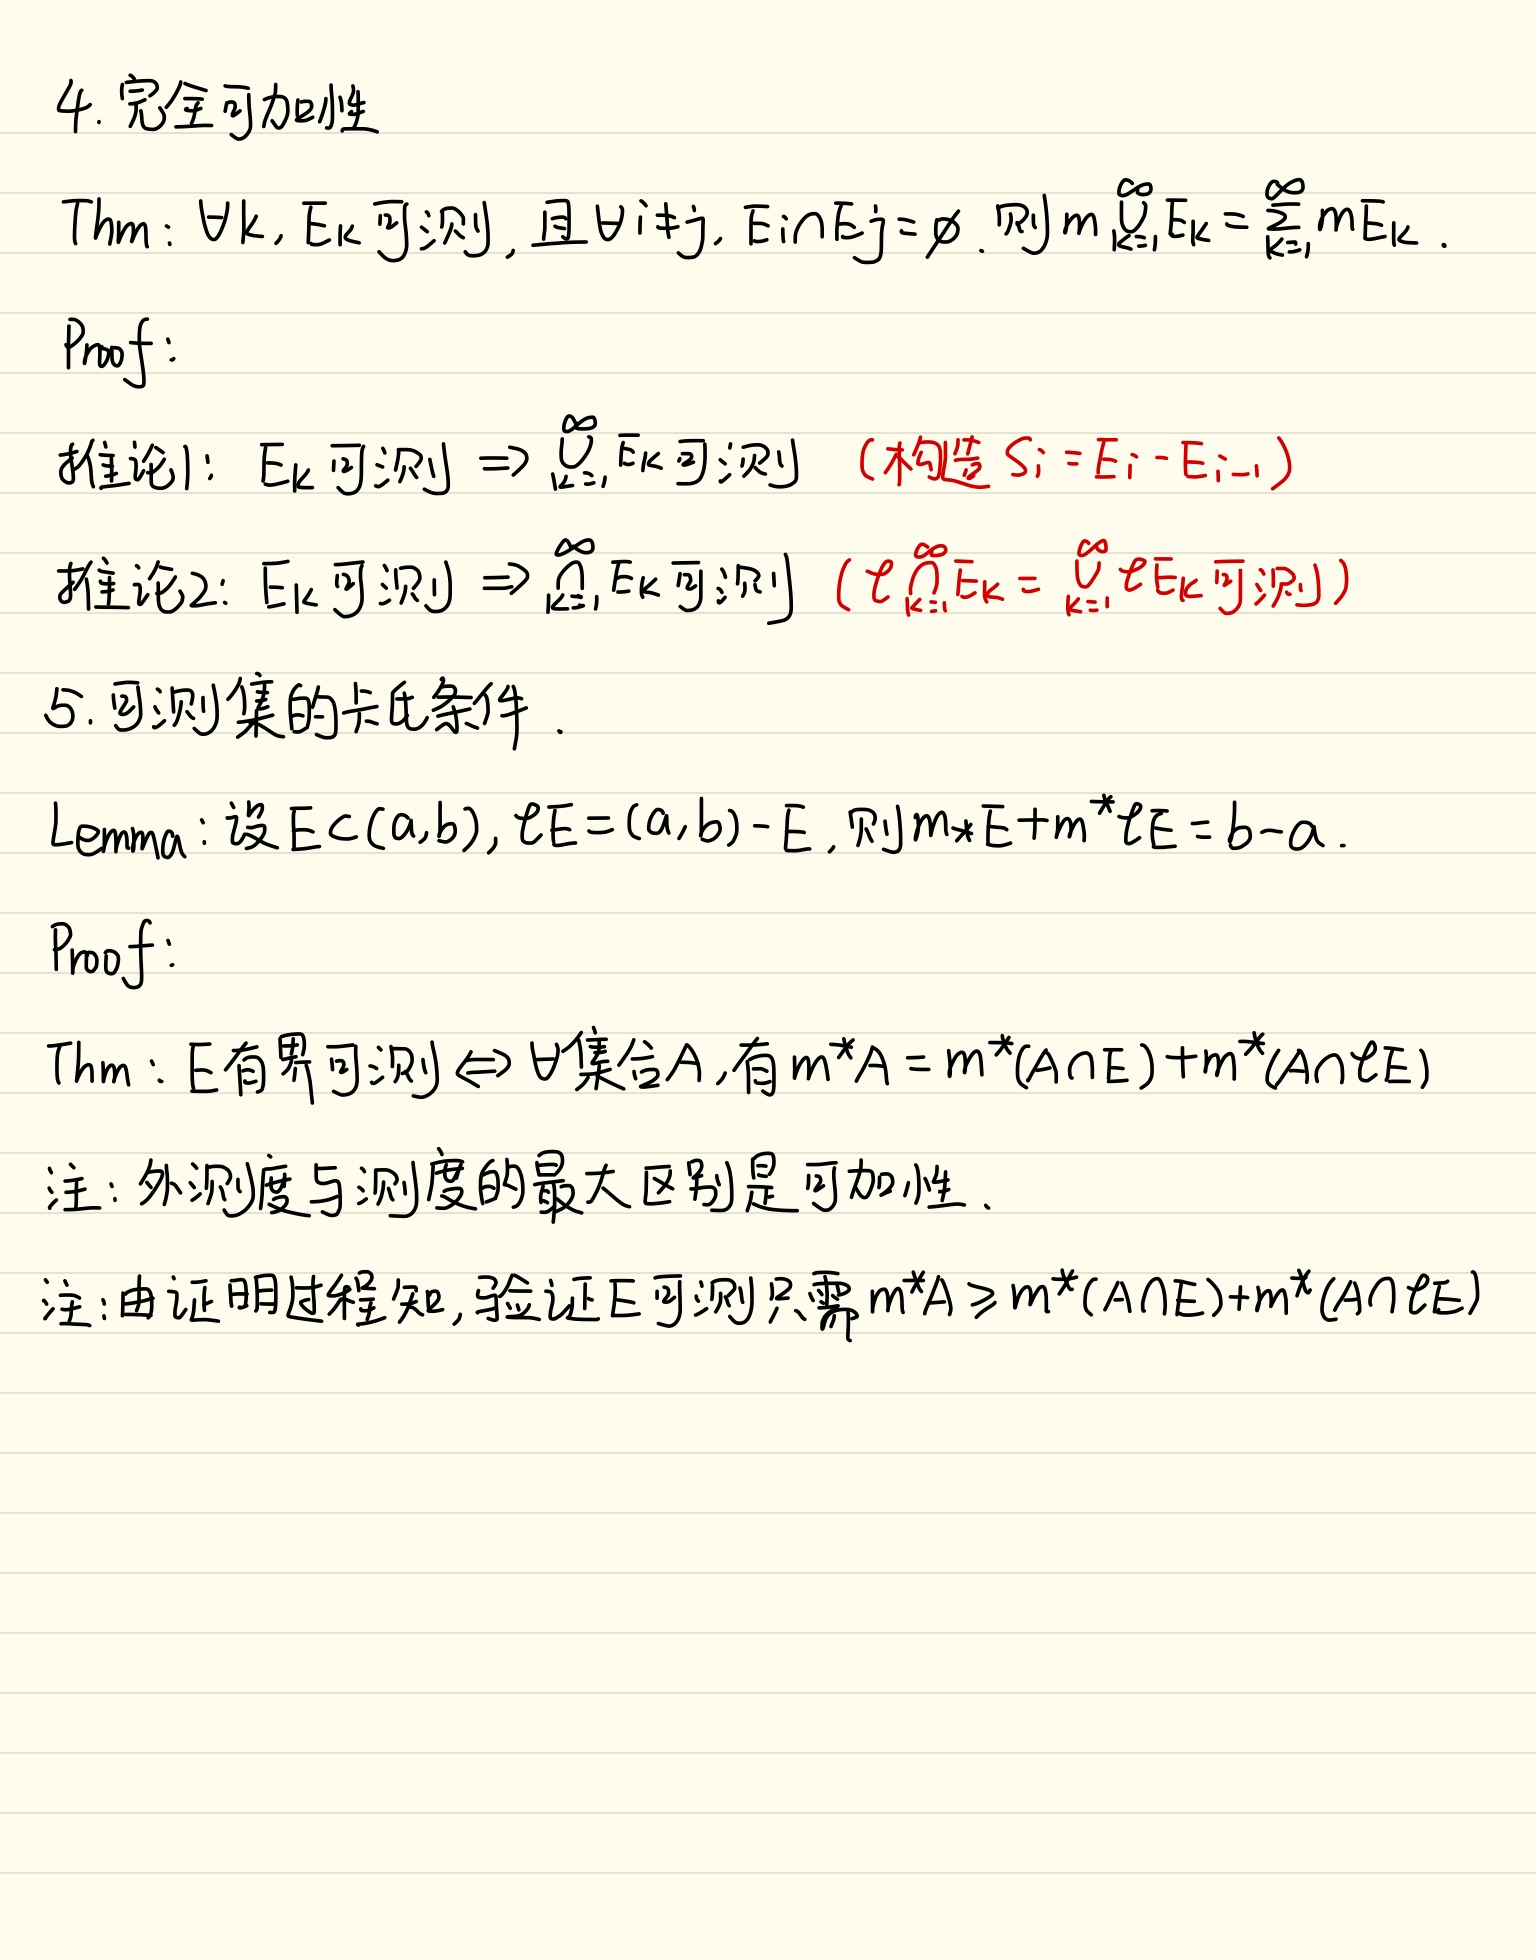 4. 完全可加性
Thm: ∀k, Eₖ 可测, 且∀i≠j, Ei∩Ej=∅. 则 m ∞∪k=1 Eₖ = ∞∑k=1 mEₖ.
Proof:
推论1: Eₖ 可测 ⇒ ∞∪k=1 Eₖ 可测 (构造 Si = Ei - Ei-1)
推论2: Eₖ 可测 ⇒ ∞∩k=1 Eₖ 可测 (ℓ ∞∩k=1 Eₖ = ∞∪k=1 ℓEₖ 可测)
5. 可测集的卡氏条件.
Lemma: 设 E⊂(a,b), ℓE=(a,b)-E, 则 m⁎E+m*ℓE=b-a.
Proof:
Thm: E有界可测 ⇔ ∀集合A, 有 m*A = m*(A∩E)+m*(A∩ℓE)
注: 外测度与测度的最大区别是可加性.
注: 由证明过程知, 验证E可测只需 m*A ≥ m*(A∩E)+m*(A∩ℓE)